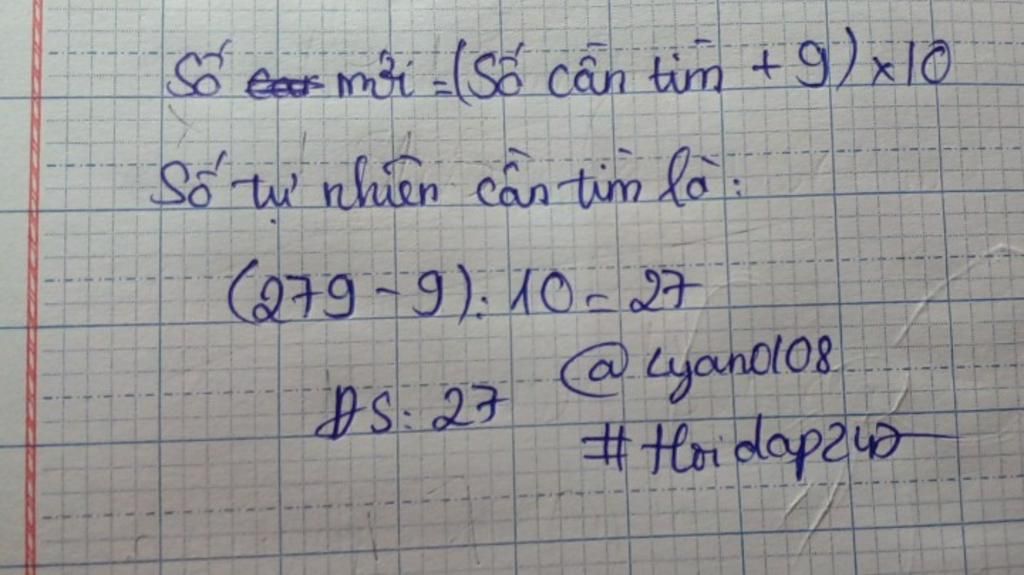 Số mới = (Số cần tìm + 9) × 10
Số tự nhiên cần tìm là:
(279 - 9) : 10 = 27
ĐS: 27
@Lyan0108
#Hoidap247